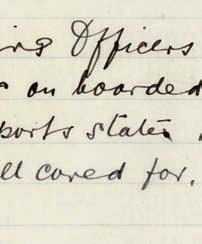 ing Officers
on boarded
ports states
ll cared for.